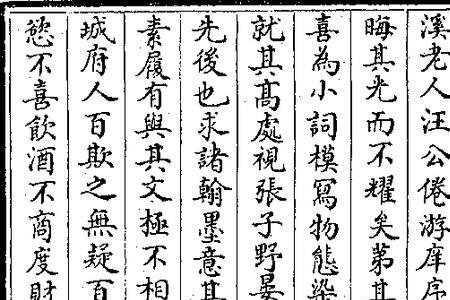 溪老人汪公倦游庠序
晦其光而不耀矣苐其
喜為小詞模寫物態染
就其髙處視張子野晏
先後也求諸翰墨意其
素履有與其文極不相
城府人百欺之無疑百
慾不喜飲酒不商度財